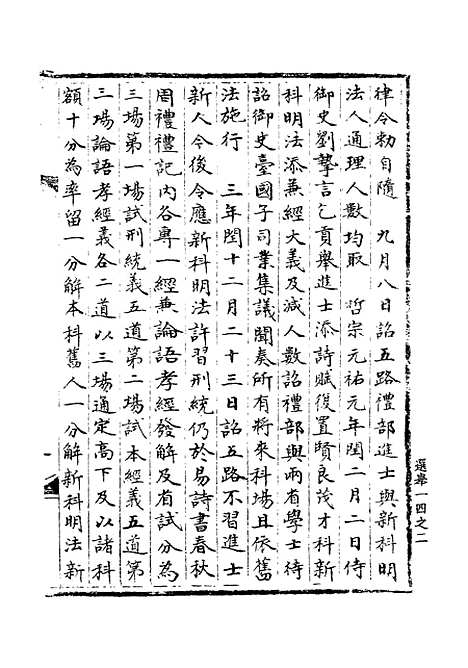 律令勑自隨　九月八日詔五路禮部進士與新科明
法人通理人數均取　哲宗元祐元年閏二月二日侍
御史劉摯言乞貢舉進士添詩賦復置賢良茂才科新
科明法添兼經大義及減人數詔禮部與兩省學士待
詔御史臺國子司業集議聞奏所有將來科場且依舊
法施行　三年閏十二月二十三日詔五路不習進士
新人今後令應新科明法許習刑統仍於易詩書春秋
周禮禮記內各專一經兼論語孝經發解及省試分為
三場第一場試刑統義五道第二場試本經義五道第
三場論語孝經義各二道以三場通定高下及以諸科
額十分為率留一分解本科舊人一分解新科明法新
選舉一四之二